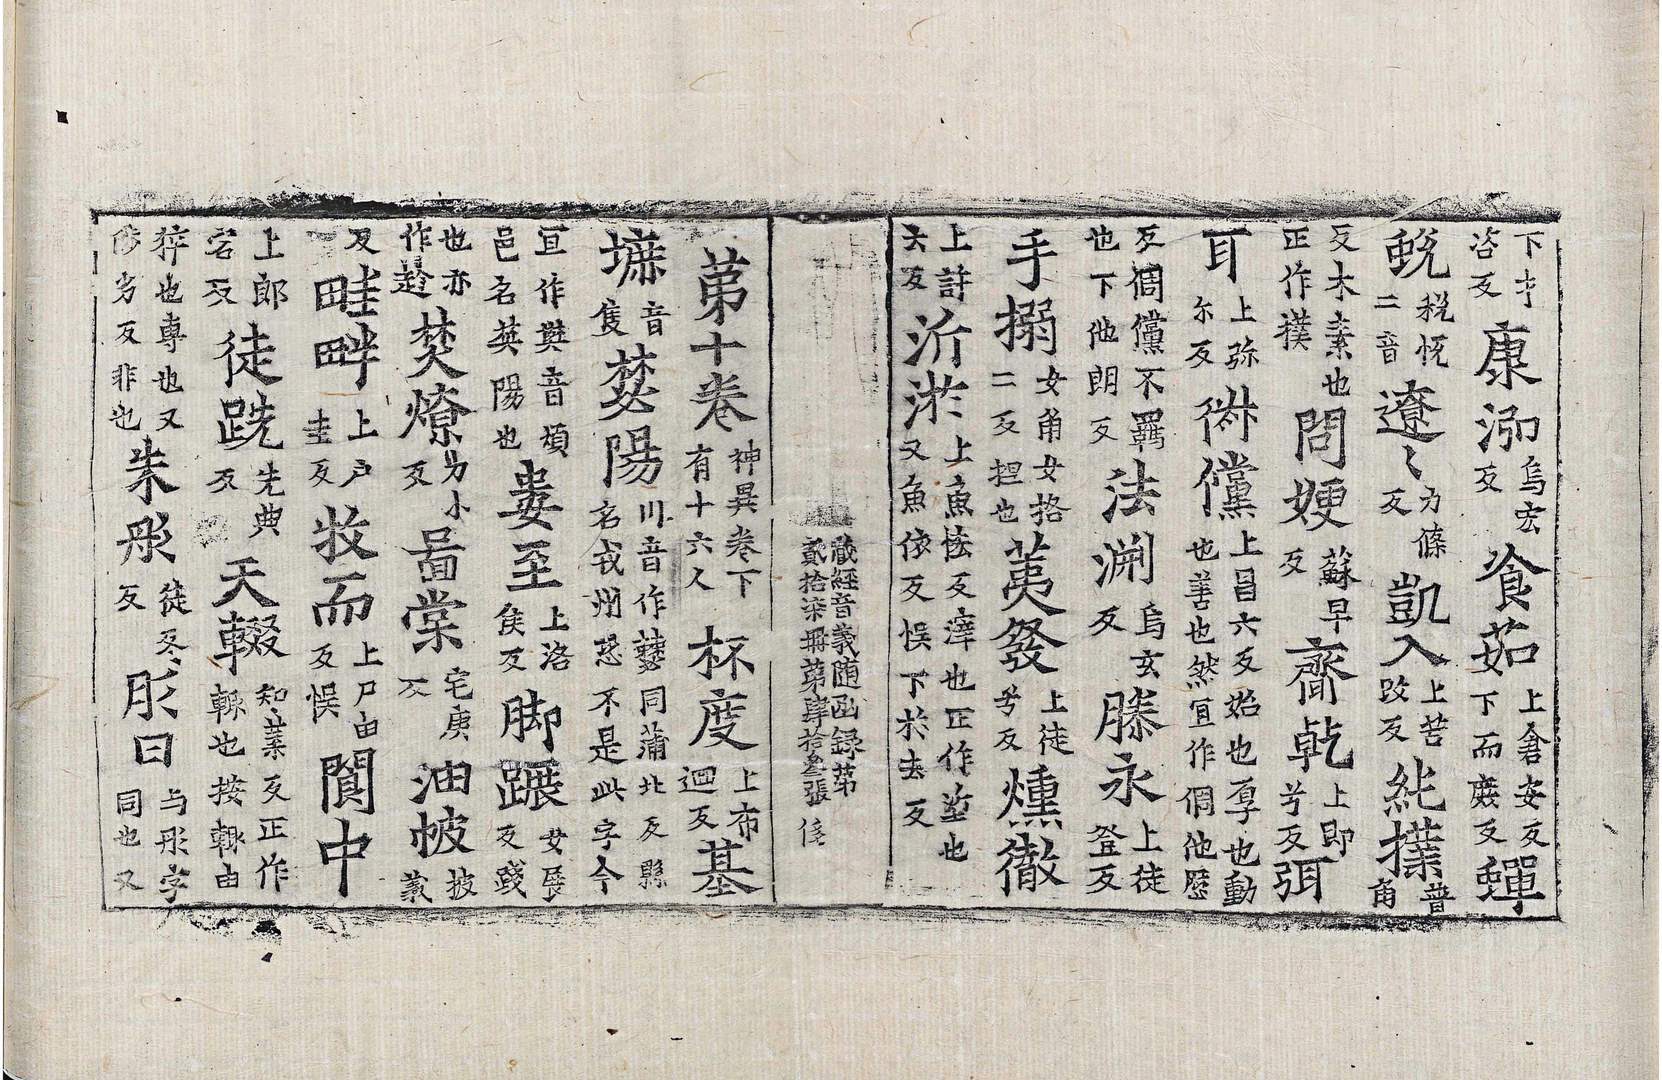 下才咨反康泖烏宏反飡茹上倉安反下而庶反蟬
蛻稅悅二音遼〻力條反凱入上苦改反純撲普角
反木素也正作樸問㛐蘇早反齋乾上即兮反弭
耳上弥尔反俶儻上昌六反始也厚也動也善也然宜作倜他歷
反倜儻不羈也下他朗反法渊烏玄反滕永上徒登反
手搦女角女格二反担也荑發上徒兮反燻徹
上許云反沂淤上魚怯反滓也正作埿也又魚依反悮下於去反
藏經音義随函録第貳拾柒冊第肆拾叁張
第十卷神異卷下有十六人杯度上布迴反基
墌音隻婪陽川音作爇同蒲北反縣名戎州恐不是此字今
宜作𤏡音煩邑名英陽也婁至上洛侯反脚蹍女展反踐
也亦作趁焚燎力小反啚棠宅庚反油帔披義
反畦畔上户圭反牧而上尸由反悮閬中
上郎宕反徒跣先典反天輟知䒳反正作輟也按輟由
猝也專也又陟劣反非也朱彤徒冬反肜曰与彤字同也又